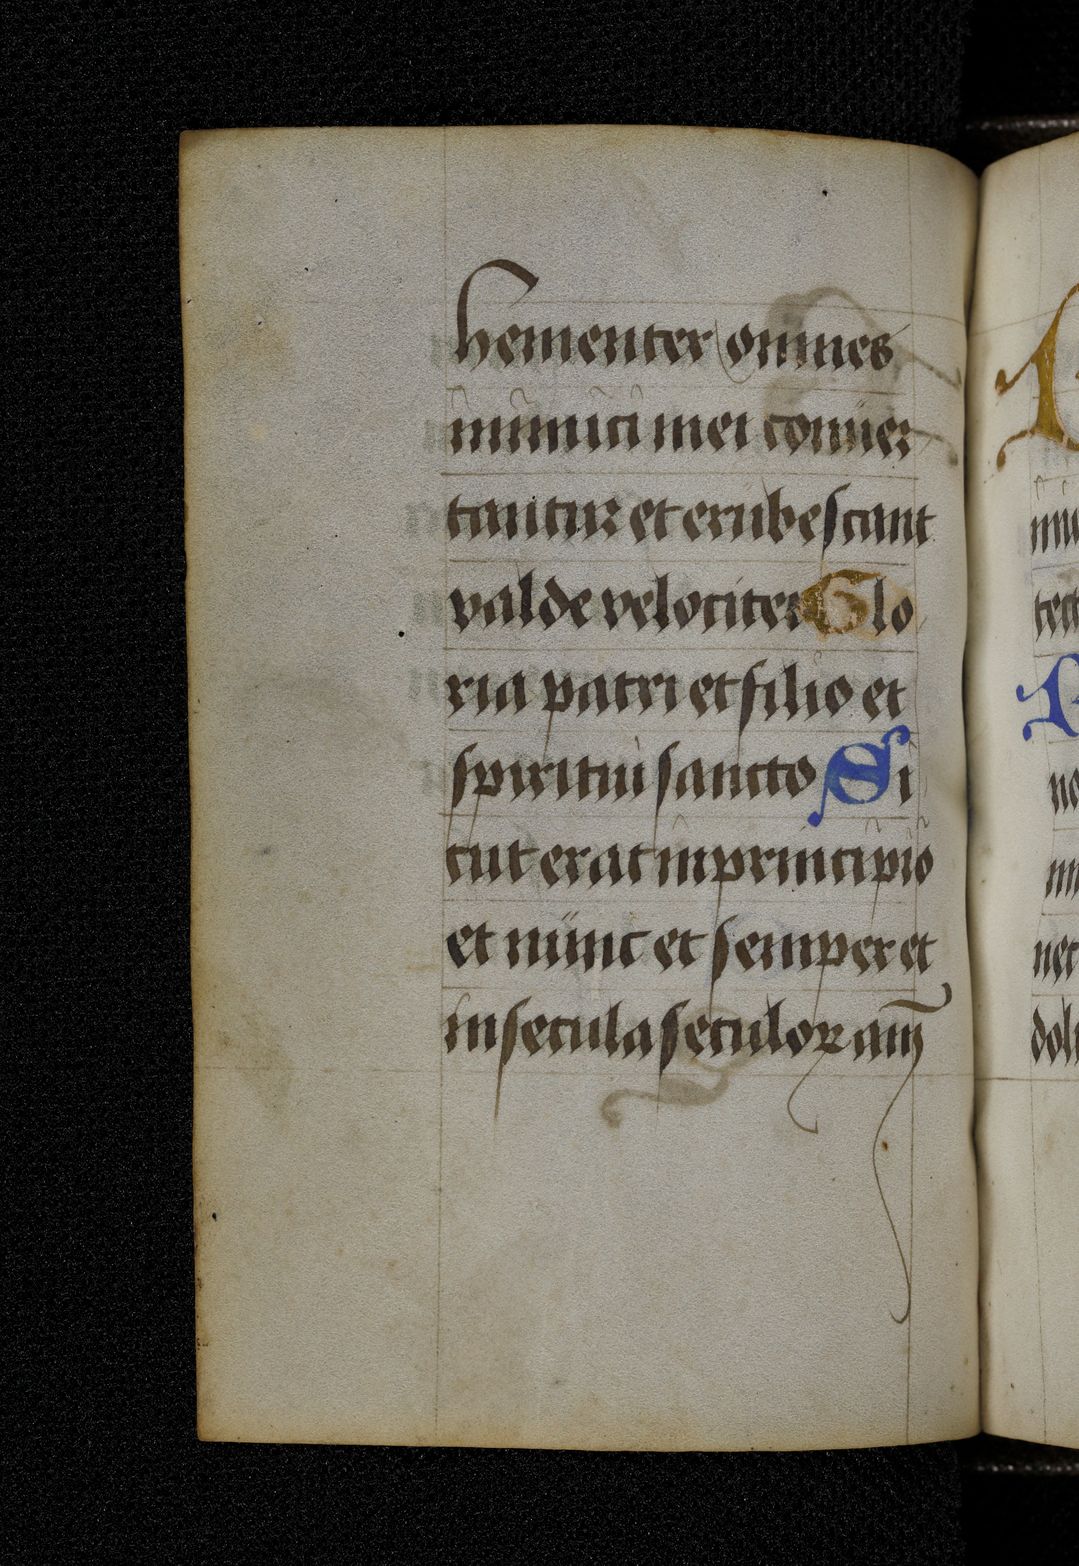 hementer omnes
inimici mei conuer
tantur et erubescant
valde velociter Glo
ria patri et filio et
spiritui sancto Si
cut erat in principio
et nunc et semper et
in secula seculoꝝ am̄